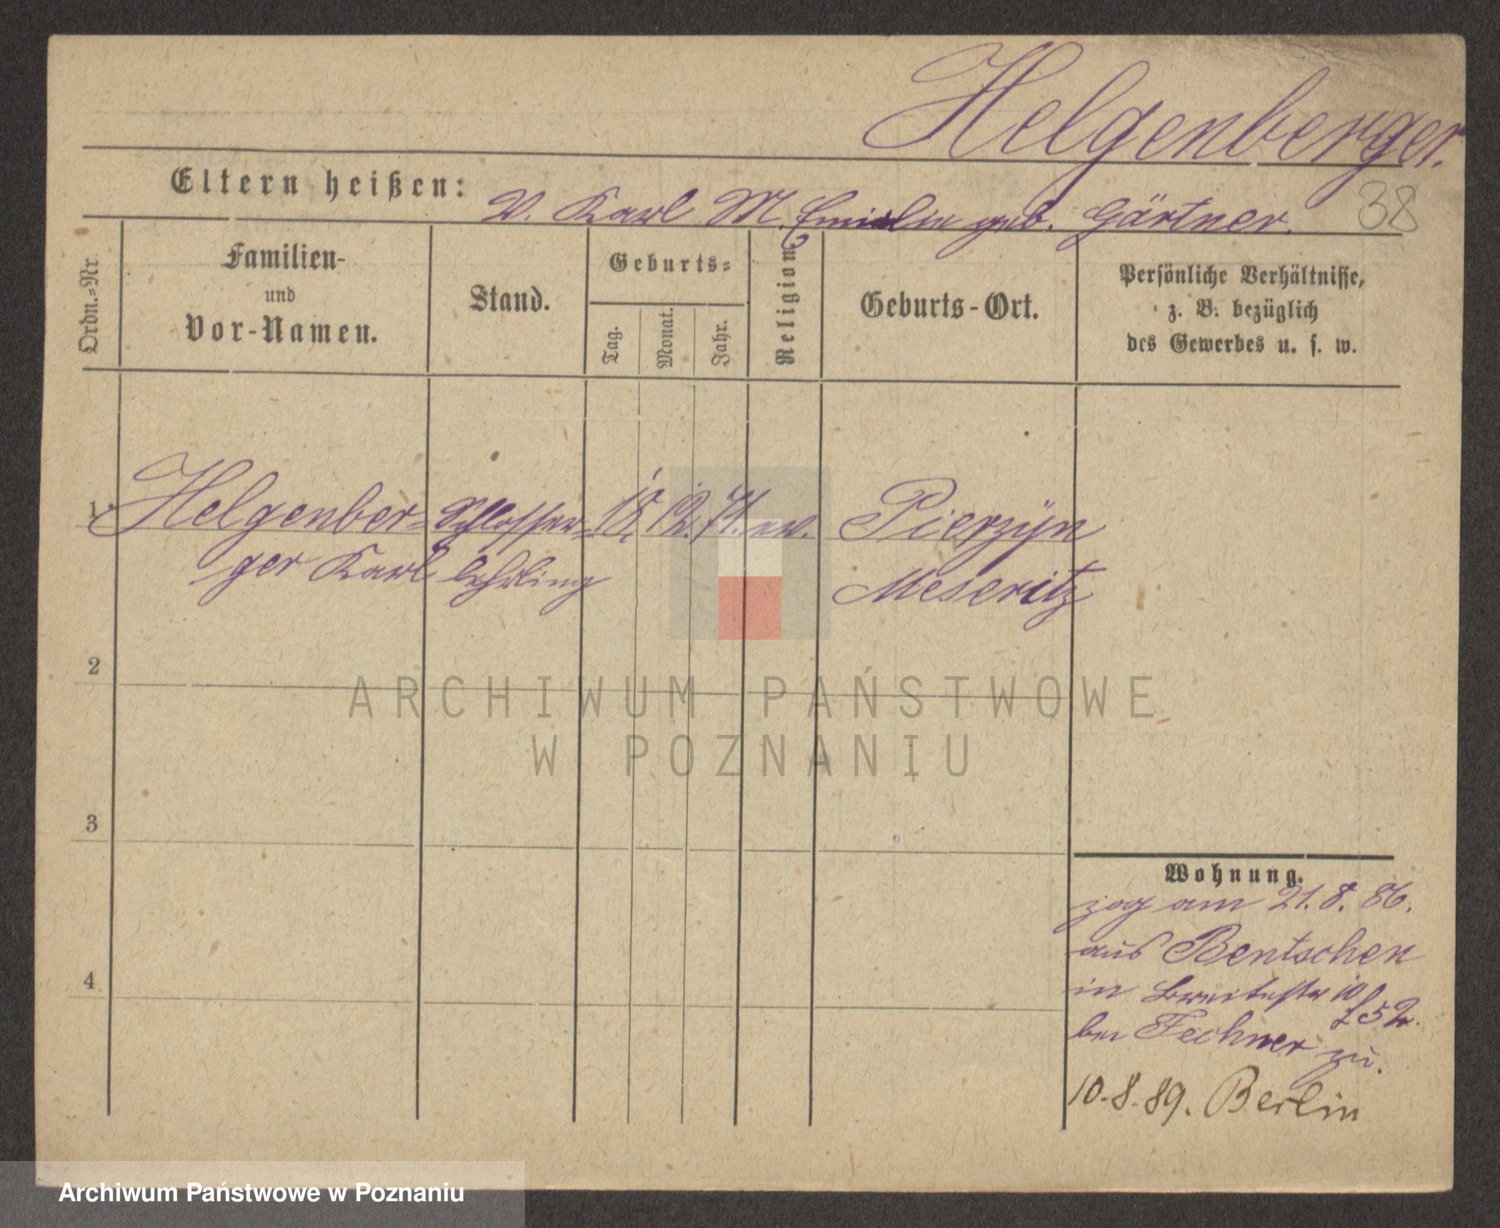 Helgenberger.
38
Eltern heißen: V. Karl M. Emilie geb. Gärtner.
Ordn.-Nr.
Familien-
und
Vor-Namen.
Stand.
Geburts-
Tag.
Monat.
Jahr.
Religion
Geburts-Ort.
Persönliche Verhältnisse,
z. B. bezüglich
des Gewerbes u. s. w.
1 Helgenber- Schlosser- 18. 12. 71. ev. Pierzyn
ger Karl lehrling Meseritz
2
3
4
Wohnung.
zog am 21.8.86.
aus Bentschen
in Breitestr 10
bei Fechner zu.
10.8.89. Berlin
ARCHIWUM PAŃSTWOWE
W POZNANIU
Archiwum Państwowe w Poznaniu